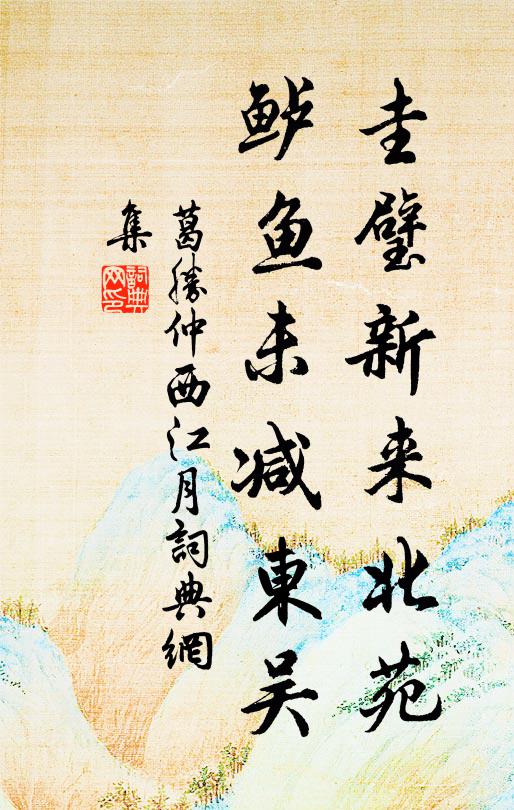 圭璧新来北苑
鲈鱼未减東吴
葛勝仲西江月詞典網
集
詞典网印